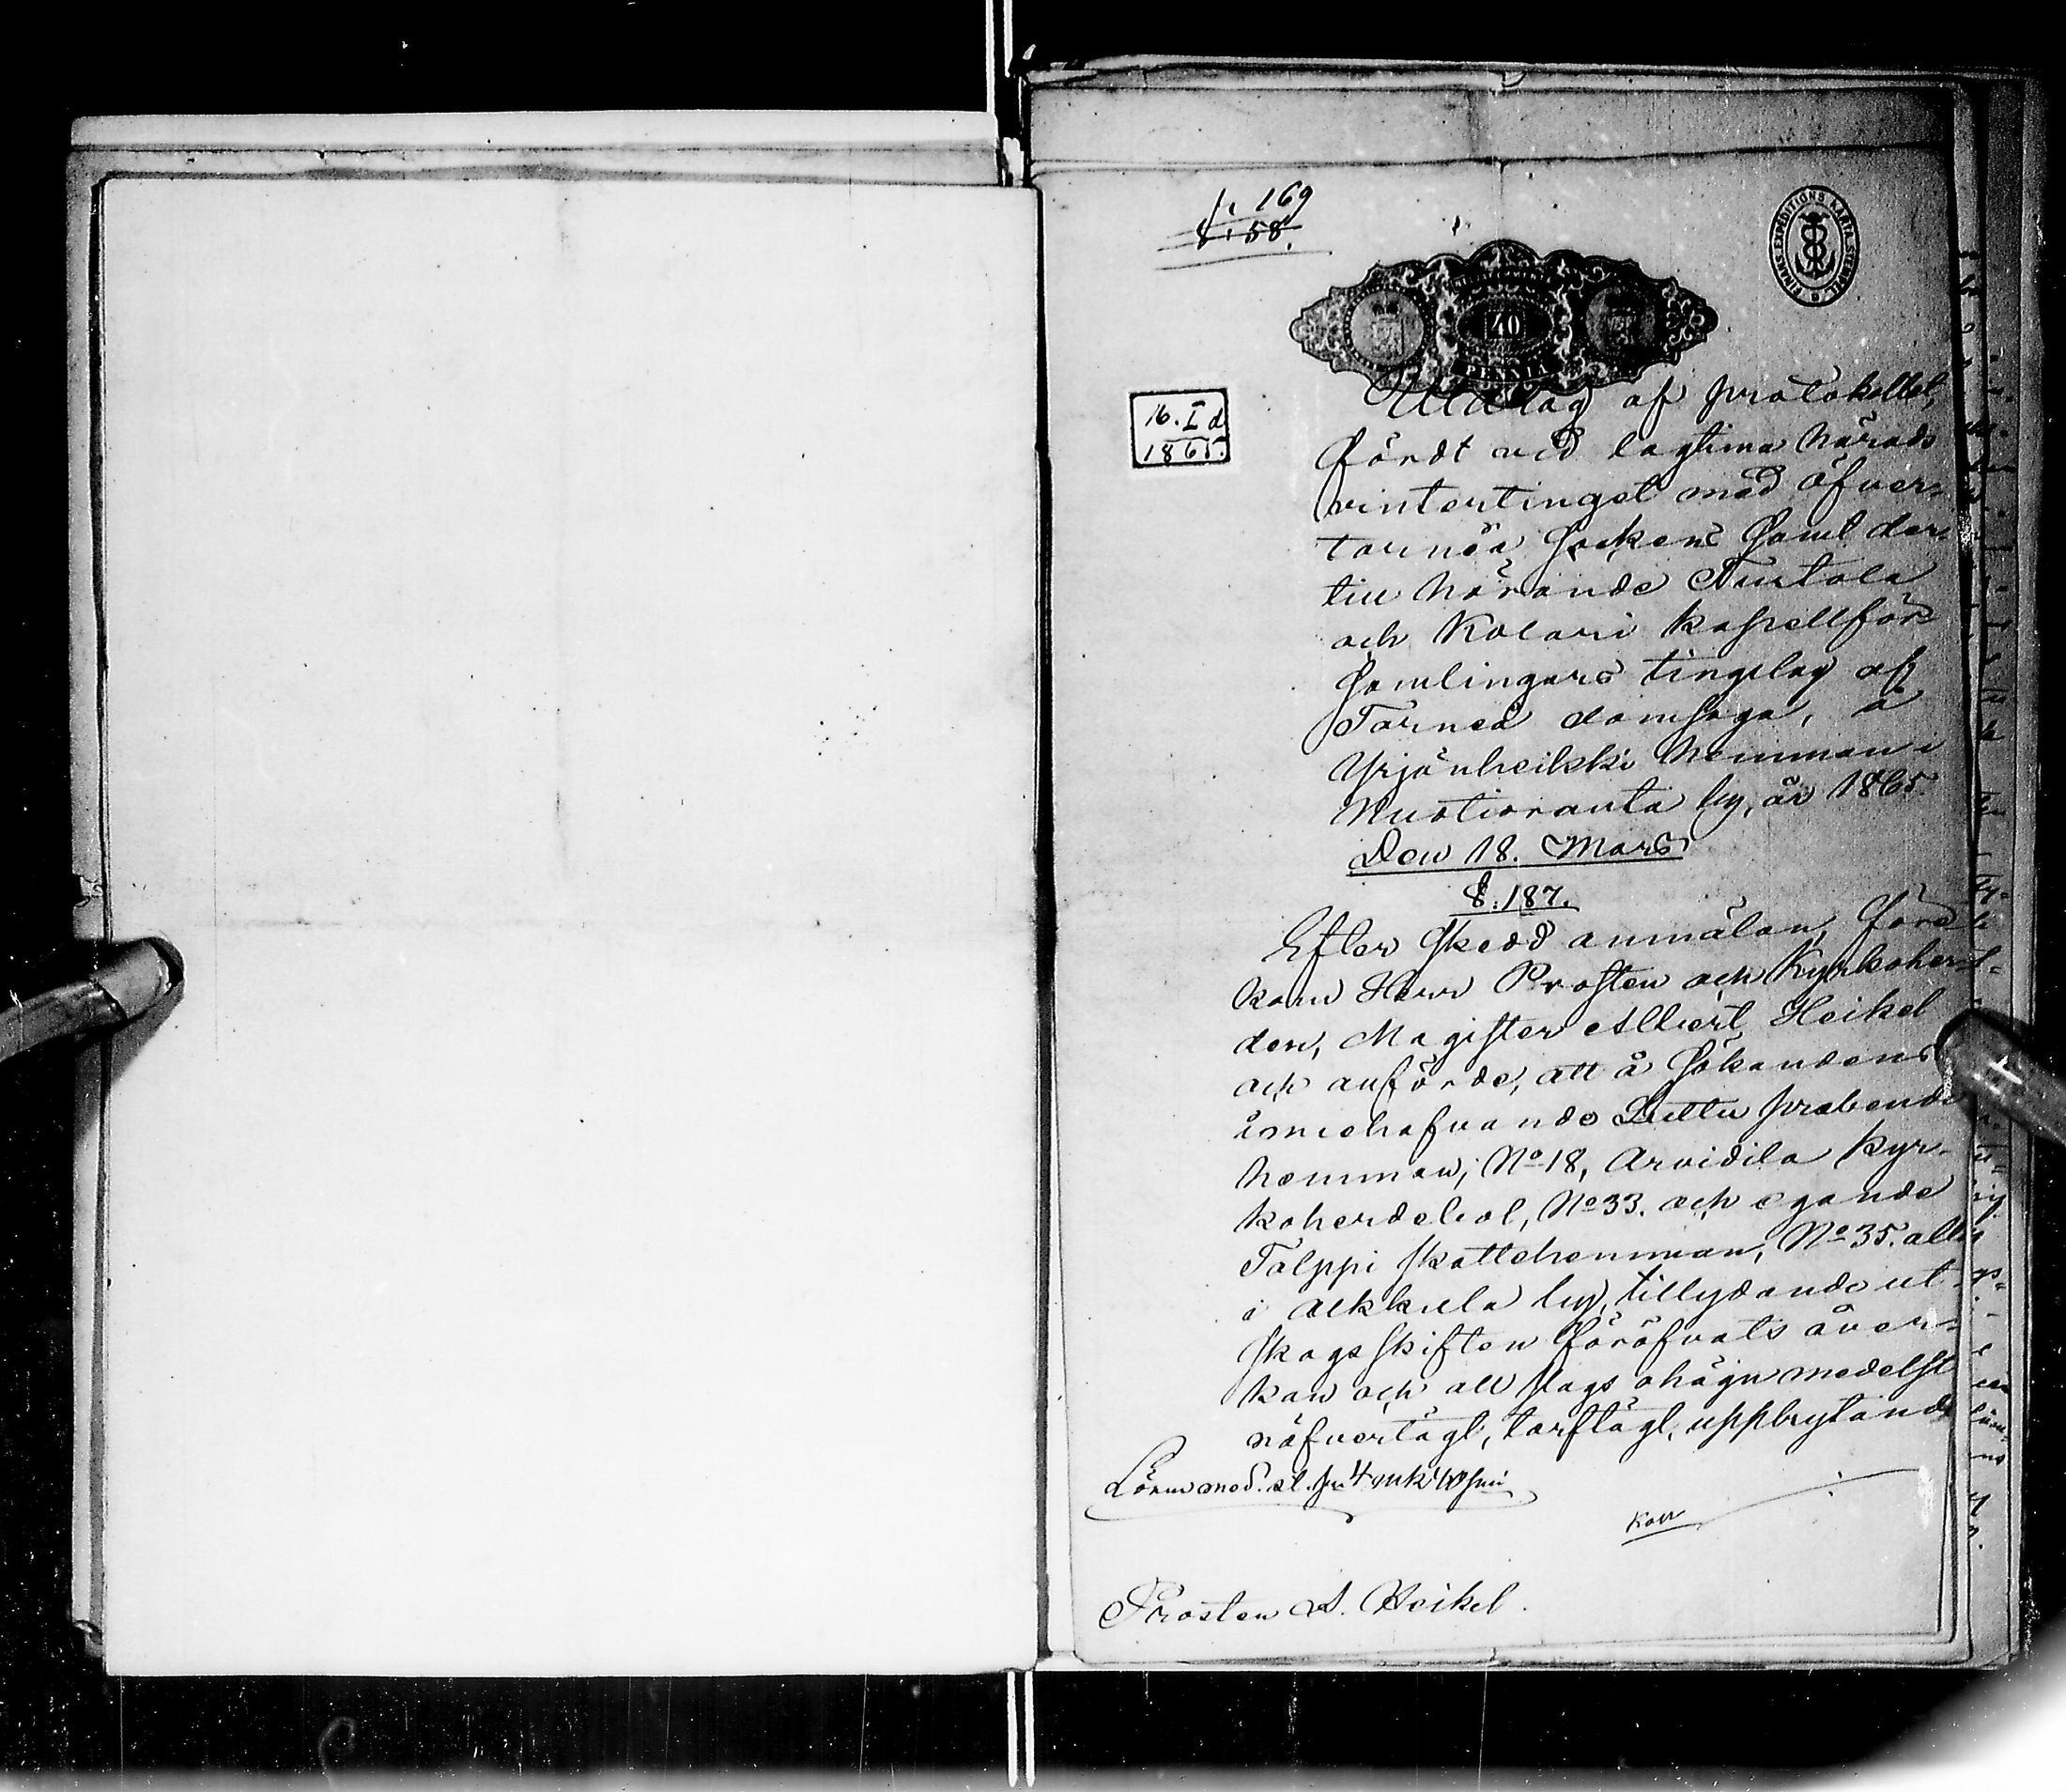 1. 169
§. 58.
FINSKA EXPEDITIONS KARTA STEMPEL
40
PENNIÄ
16. I d
1865.
Utdrag af protokollet,
fördt vid lagtima härads
vintertinget med Öfver-
torneå Sockens samt der-
till hörande Turtola
och Kolari kapellför-
samlingars tingslag af
Torneå domsaga, å
Yrjänheikki hemman i
Nuotioranta by, år 1865
Den 18. Mars
§. 187.
Efter skedd anmälan, före
kom Herr Prosten och Kyrkoher-
den, Magister Albert Heikel
och anförde, att å Sökandens
innehafvande Luttu præbende
hemman, No 18, Arvidila kyr-
koherdebol, No 33. och egande
Tälppi skattehemman, No 35. alla
i Alkkula by, tillydande ut-
skogsskiften föröfvats åver-
kan och all slags ohägn medelst
näfvertägt, torftägt, uppbrytande
Lösen med. sl. pr 4 mk 40 pni
Prosten A. Heikel.